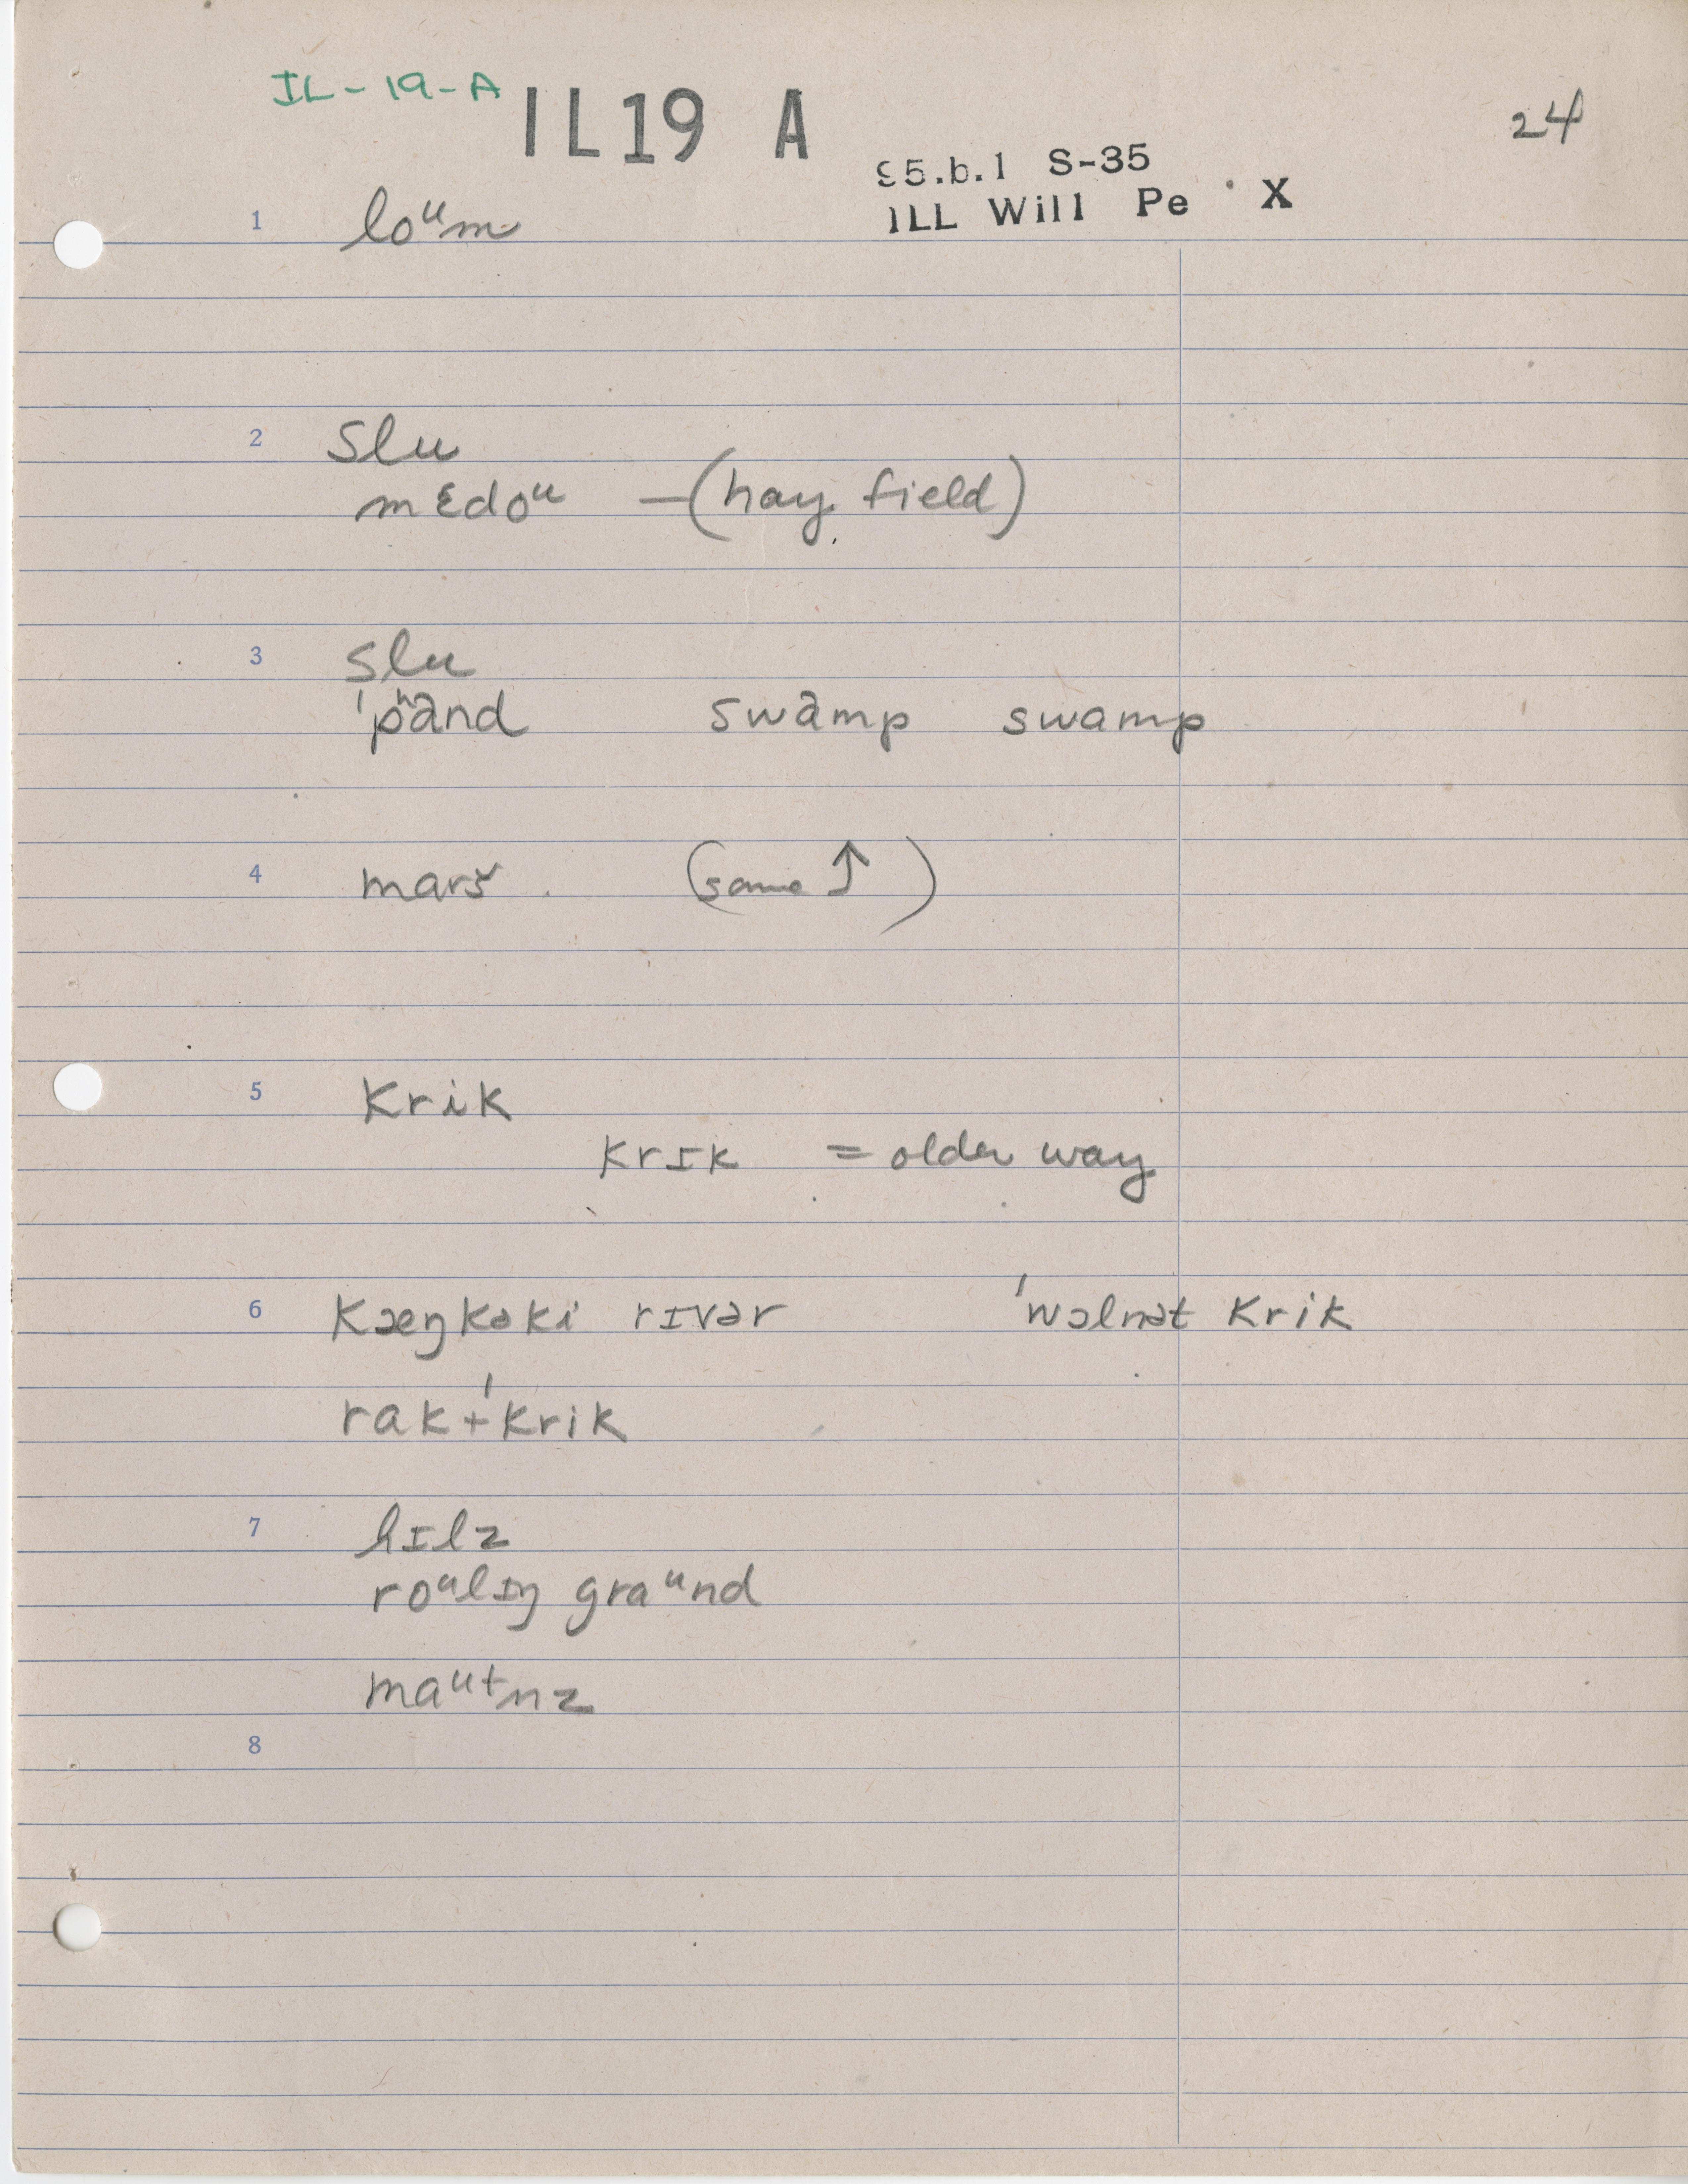 IL-19-A
IL19 A
24
95.b.1 S-35
ILL Will Pe X
1 loᵘm
2 slu
mɛdoᵘ —(hay field)
3 slu
ˈpʰand swamp swamp
4 marš (same ↑)
5 krik
krɪk = older way
6 kæŋkəki rɪvər ˈwɔlnət krik
rak+ˈkrik
7 hɪlz
roᵘlɪŋ graᵘnd
maᵘtnz
8